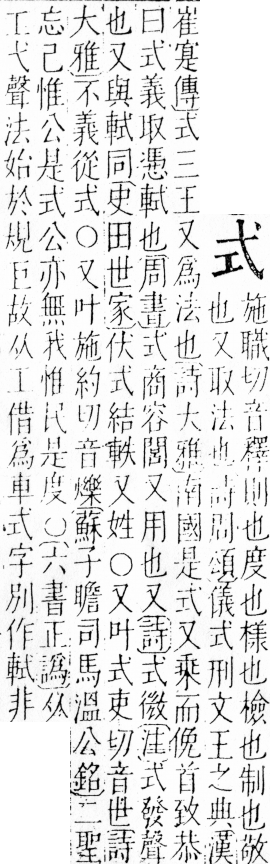 式
施職切音釋則也度也樣也檢也制也敬
也又取法也詩周頌儀式刑文王之典漢
崔寔傳式三王又爲法也詩大雅南國是式又乘而俛首致恭
曰式義取憑軾也周書式商容閭又用也又詩式微注式發聲
也又與軾同史田世家伏式結軼又姓○又叶式吏切音世詩
大雅不義從式○又叶施約切音爍蘇子瞻司馬溫公銘二聖
忘己惟公是式公亦無我惟民是度○六書正譌从
工弋聲法始於規巨故从工借爲車式字別作軾非